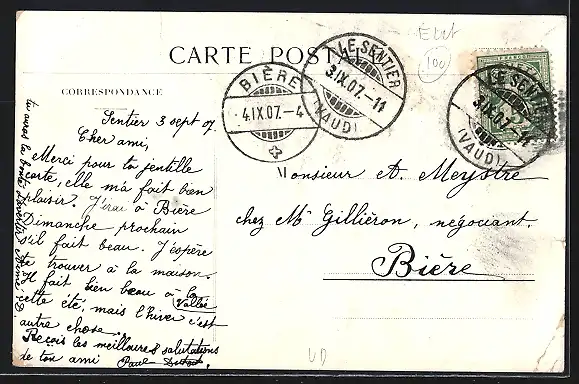 Elut
100
CARTE POSTALE
LE SENTIER
3.IX.07.-11
(VAUD)
BIÈRE
4.IX.07.-4
LE SENTIER
3.IX.07.-11
(VAUD)
CORRESPONDANCE
Sentier 3 sept 07.
Cher ami,
Merci pour ta gentille
carte, elle m'a fait bien
plaisir. J'irai à Bière
Dimanche prochain
s'il fait beau. J'espère
te trouver à la maison.
Il fait bien beau à la
Vallée
cette été, mais l'hiver c'est
autre chose.
Reçois les meilleures salutations
de ton ami Paul
tu auras la bonté
Monsieur A. Meystre
chez Mr Gilliéron, negociant.
Bière
UD